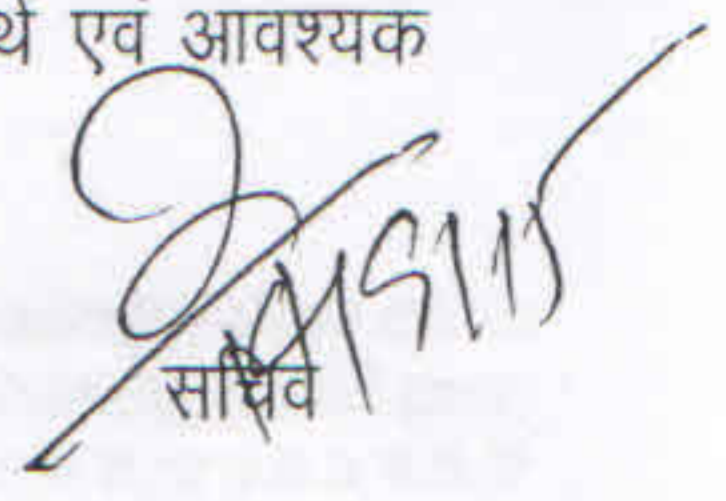 र्थ एवं आवश्यक
सचिव